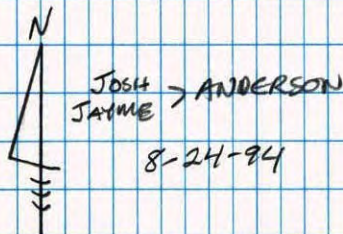 N
JOSH
JAYME > ANDERSON
8-24-94